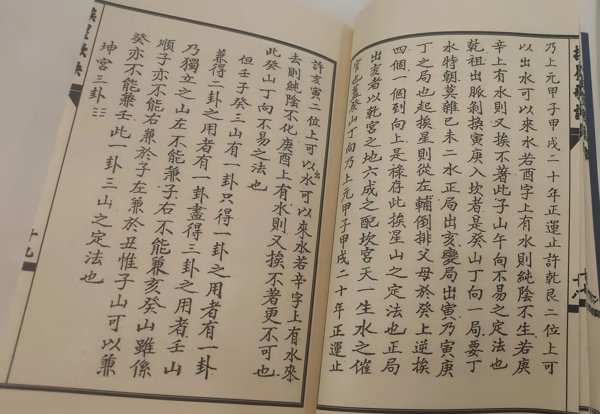 乃上元甲子甲戌二十年正運止許乾艮二位上可
以出水可以來水若酉字上有水則純陰不生若庚
辛上有水則又挨不著此子山午向不易之法也
乾祖出脈剝換寅庚入坎者是癸山丁向一局要丁
水特朝莫雜巳未二水正局出亥變局出寅乃寅庚
丁之局也起挨星則從左輔倒排父母於癸上逆挨
四個一個到向上是祿存此挨星山之定法也正局
出亥者以乾宮之地六成之配坎宮天一生水之催
官也蓋癸山丁向乃上元甲子甲戌二十年正運止
許亥寅二位上可以出水可以來水若辛字上有水來
去則純陰不化庚酉上有水則又挨不著更不可也
此癸山丁向不易之法也
但壬子癸三山有一卦只得一卦之用者有一卦
兼得二卦之用者有一卦盡得三卦之用者壬山
乃獨立之山左不能兼子右不能兼亥癸山雖係
順子亦不能右兼於子左兼於丑惟子山可以兼
癸亦不能兼壬此一卦三山之定法也
坤宮三卦☷
挨星
訣
十九
十八